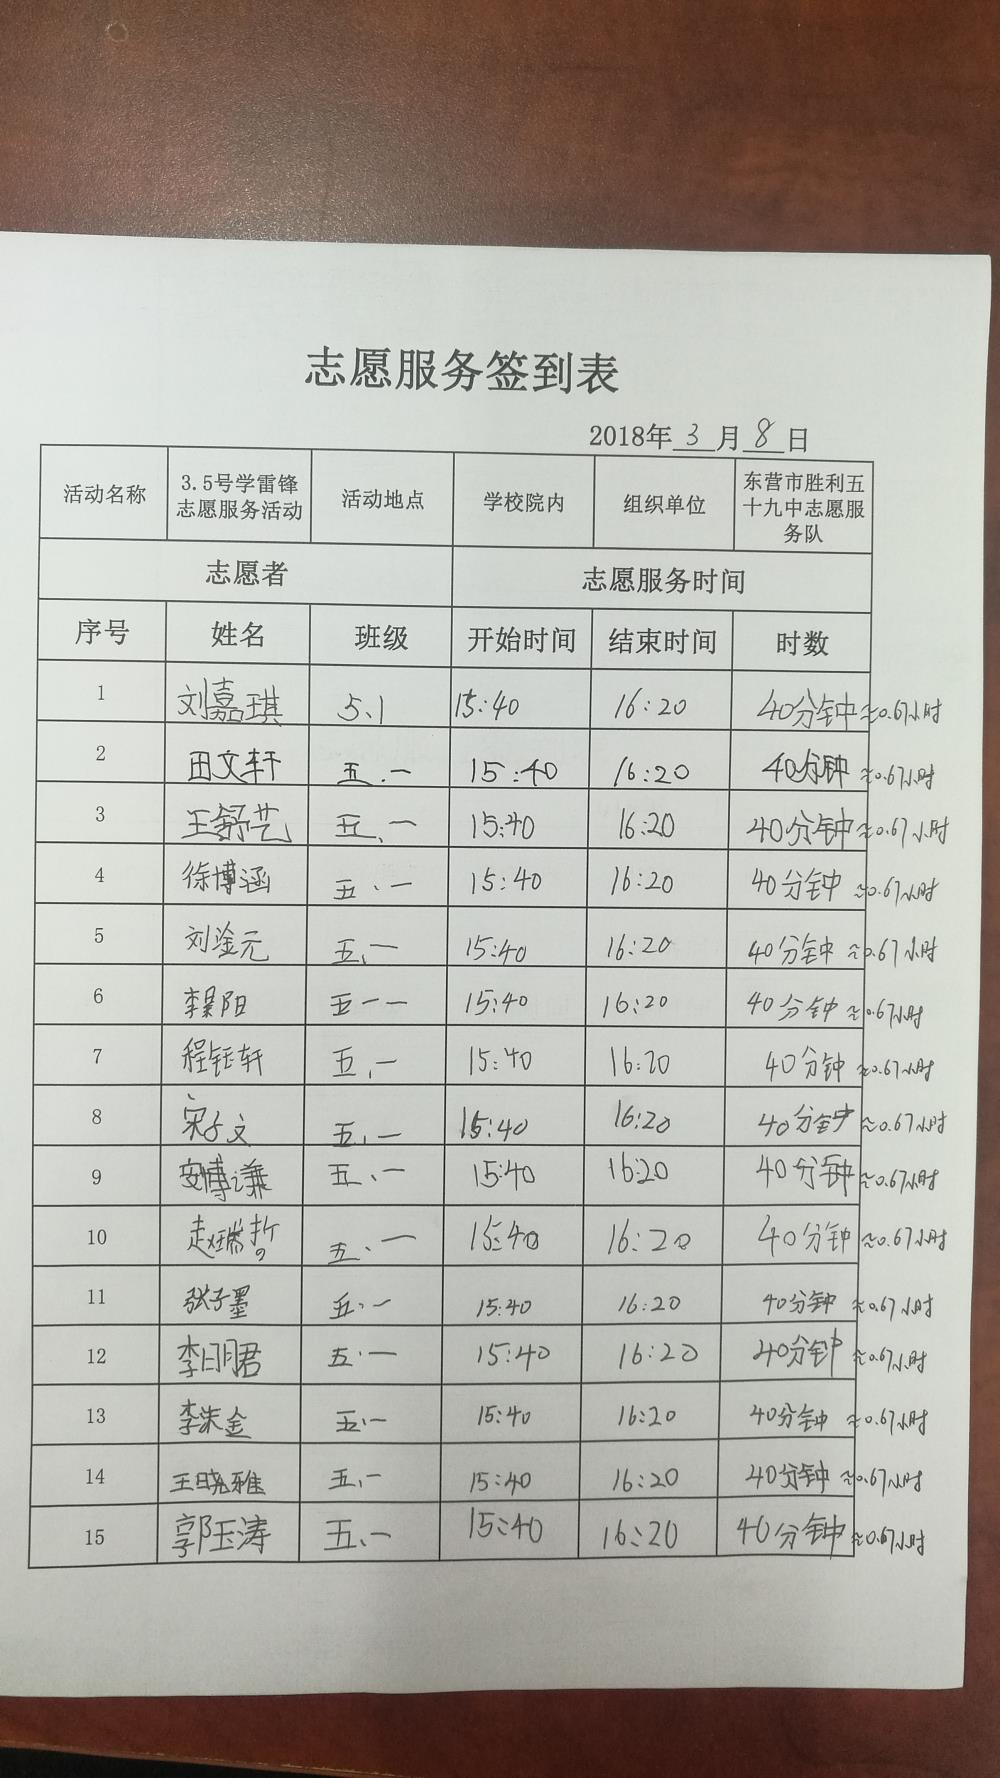 志愿服务签到表
2018年 3 月 8 日
活动名称 3.5号学雷锋志愿服务活动 活动地点 学校院内 组织单位 东营市胜利五十九中志愿服务队
志愿者 志愿服务时间
序号 姓名 班级 开始时间 结束时间 时数
1 刘嘉琪 5.1 15:40 16:20 40分钟≈0.67小时
2 田文轩 五.一 15:40 16:20 40分钟≈0.67小时
3 王舒艺 五、一 15:40 16:20 40分钟≈0.67小时
4 徐博涵 五.一 15:40 16:20 40分钟≈0.67小时
5 刘淦元 五、一 15:40 16:20 40分钟≈0.67小时
6 李昊阳 五一一 15:40 16:20 40分钟≈0.67小时
7 程钰轩 五.一 15:40 16:20 40分钟≈0.67小时
8 宋子文 五.一 15:40 16:20 40分钟≈0.67小时
9 安博谦 五、一 15:40 16:20 40分钟≈0.67小时
10 赵瑞哲 五.一 15:40 16:20 40分钟≈0.67小时
11 张子墨 五.一 15:40 16:20 40分钟≈0.67小时
12 李明君 五.一 15:40 16:20 40分钟≈0.67小时
13 李 金 五.一 15:40 16:20 40分钟≈0.67小时
14 王晓雅 五.一 15:40 16:20 40分钟≈0.67小时
15 郭玉涛 五、一 15:40 16:20 40分钟≈0.67小时